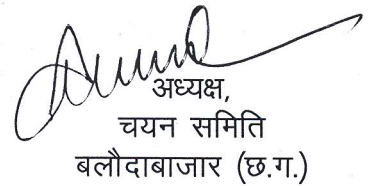 अध्यक्ष,
चयन समिति
बलौदाबाजार (छ.ग.)